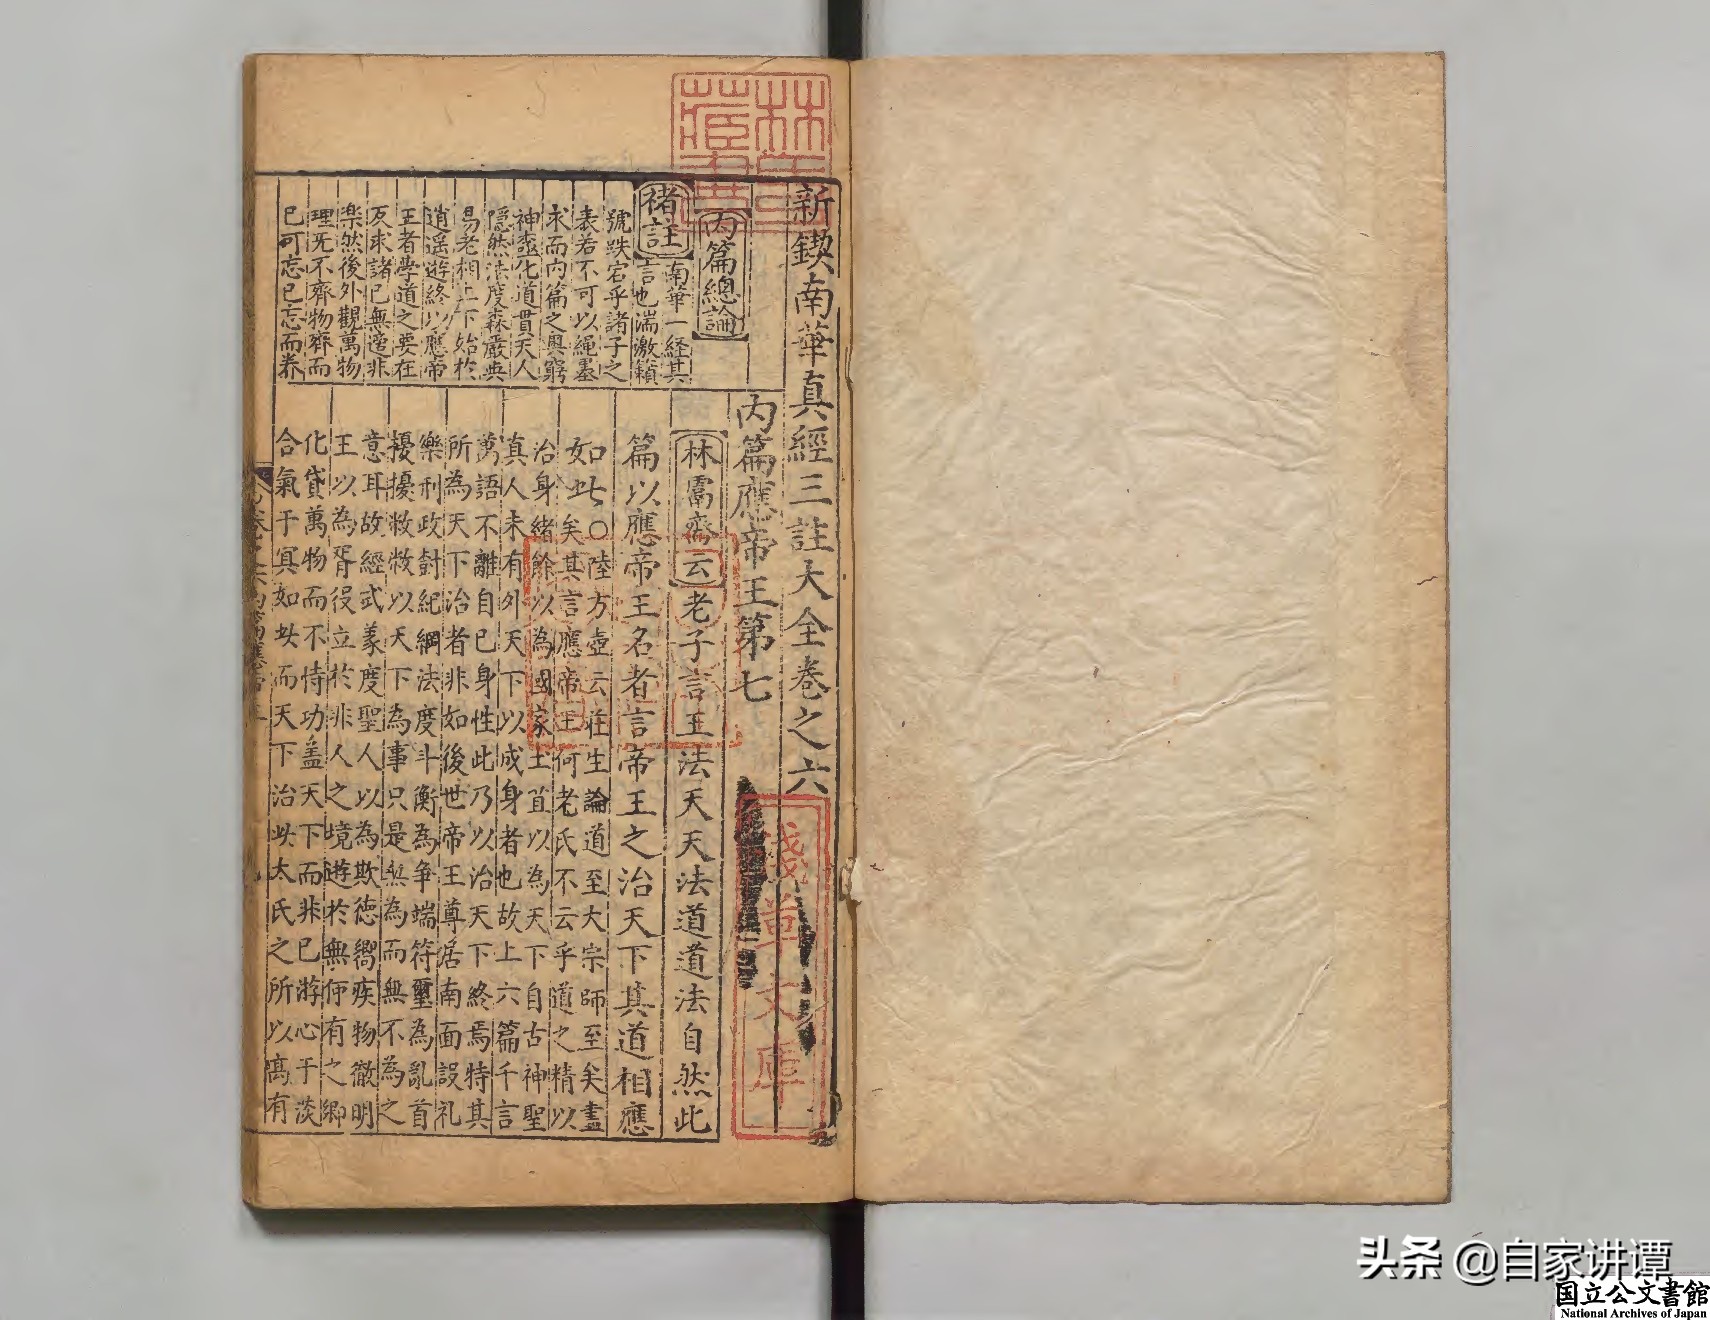 新鍥南華真經三註大全卷之六
內篇總論
褚註
南華一經其
言也湍激籟
號跌宕乎諸子之
表若不可以繩墨
求而內篇之奧窮
神盡化道貫天人
隱然法度森嚴與
易老相上下始於
逍遥遊終以應帝
王者學道之要在
反求諸已無適非
樂然後外觀萬物
理旡不齊物齊而
已可忘已忘而養
內篇應帝王第七
林鬳齋云老子言王法天天法道道法自然此
篇以應帝王名者言帝王之治天下其道相應
如此〇陸方壺云莊生論道至大宗師至矣盡
矣其言應帝王何老氏不云乎道之精以
治身緒餘以為國家土苴以為天下自古神聖
真人未有外天下以成身者也故上六篇千言
萬語不離自已身性此乃以治天下終焉特其
所為天下治者非如後世帝王尊居南面設礼
樂刑政封紀綱法度斗衡為爭端符璽為亂首
擾擾救救以天下為事只是無為而無不為之
意耳故經式義度聖人以為欺德嚮疾物徹明
王以為胥役立於非人之境遊於無何有之鄉
化貸萬物而不恃功盖天下而非已游心于淡
合氣于冥如此而天下治此太氏之所以高有
林氏藏書
淺草文庫
头条 @自家讲谭
国立公文書館
National Archives of Japan